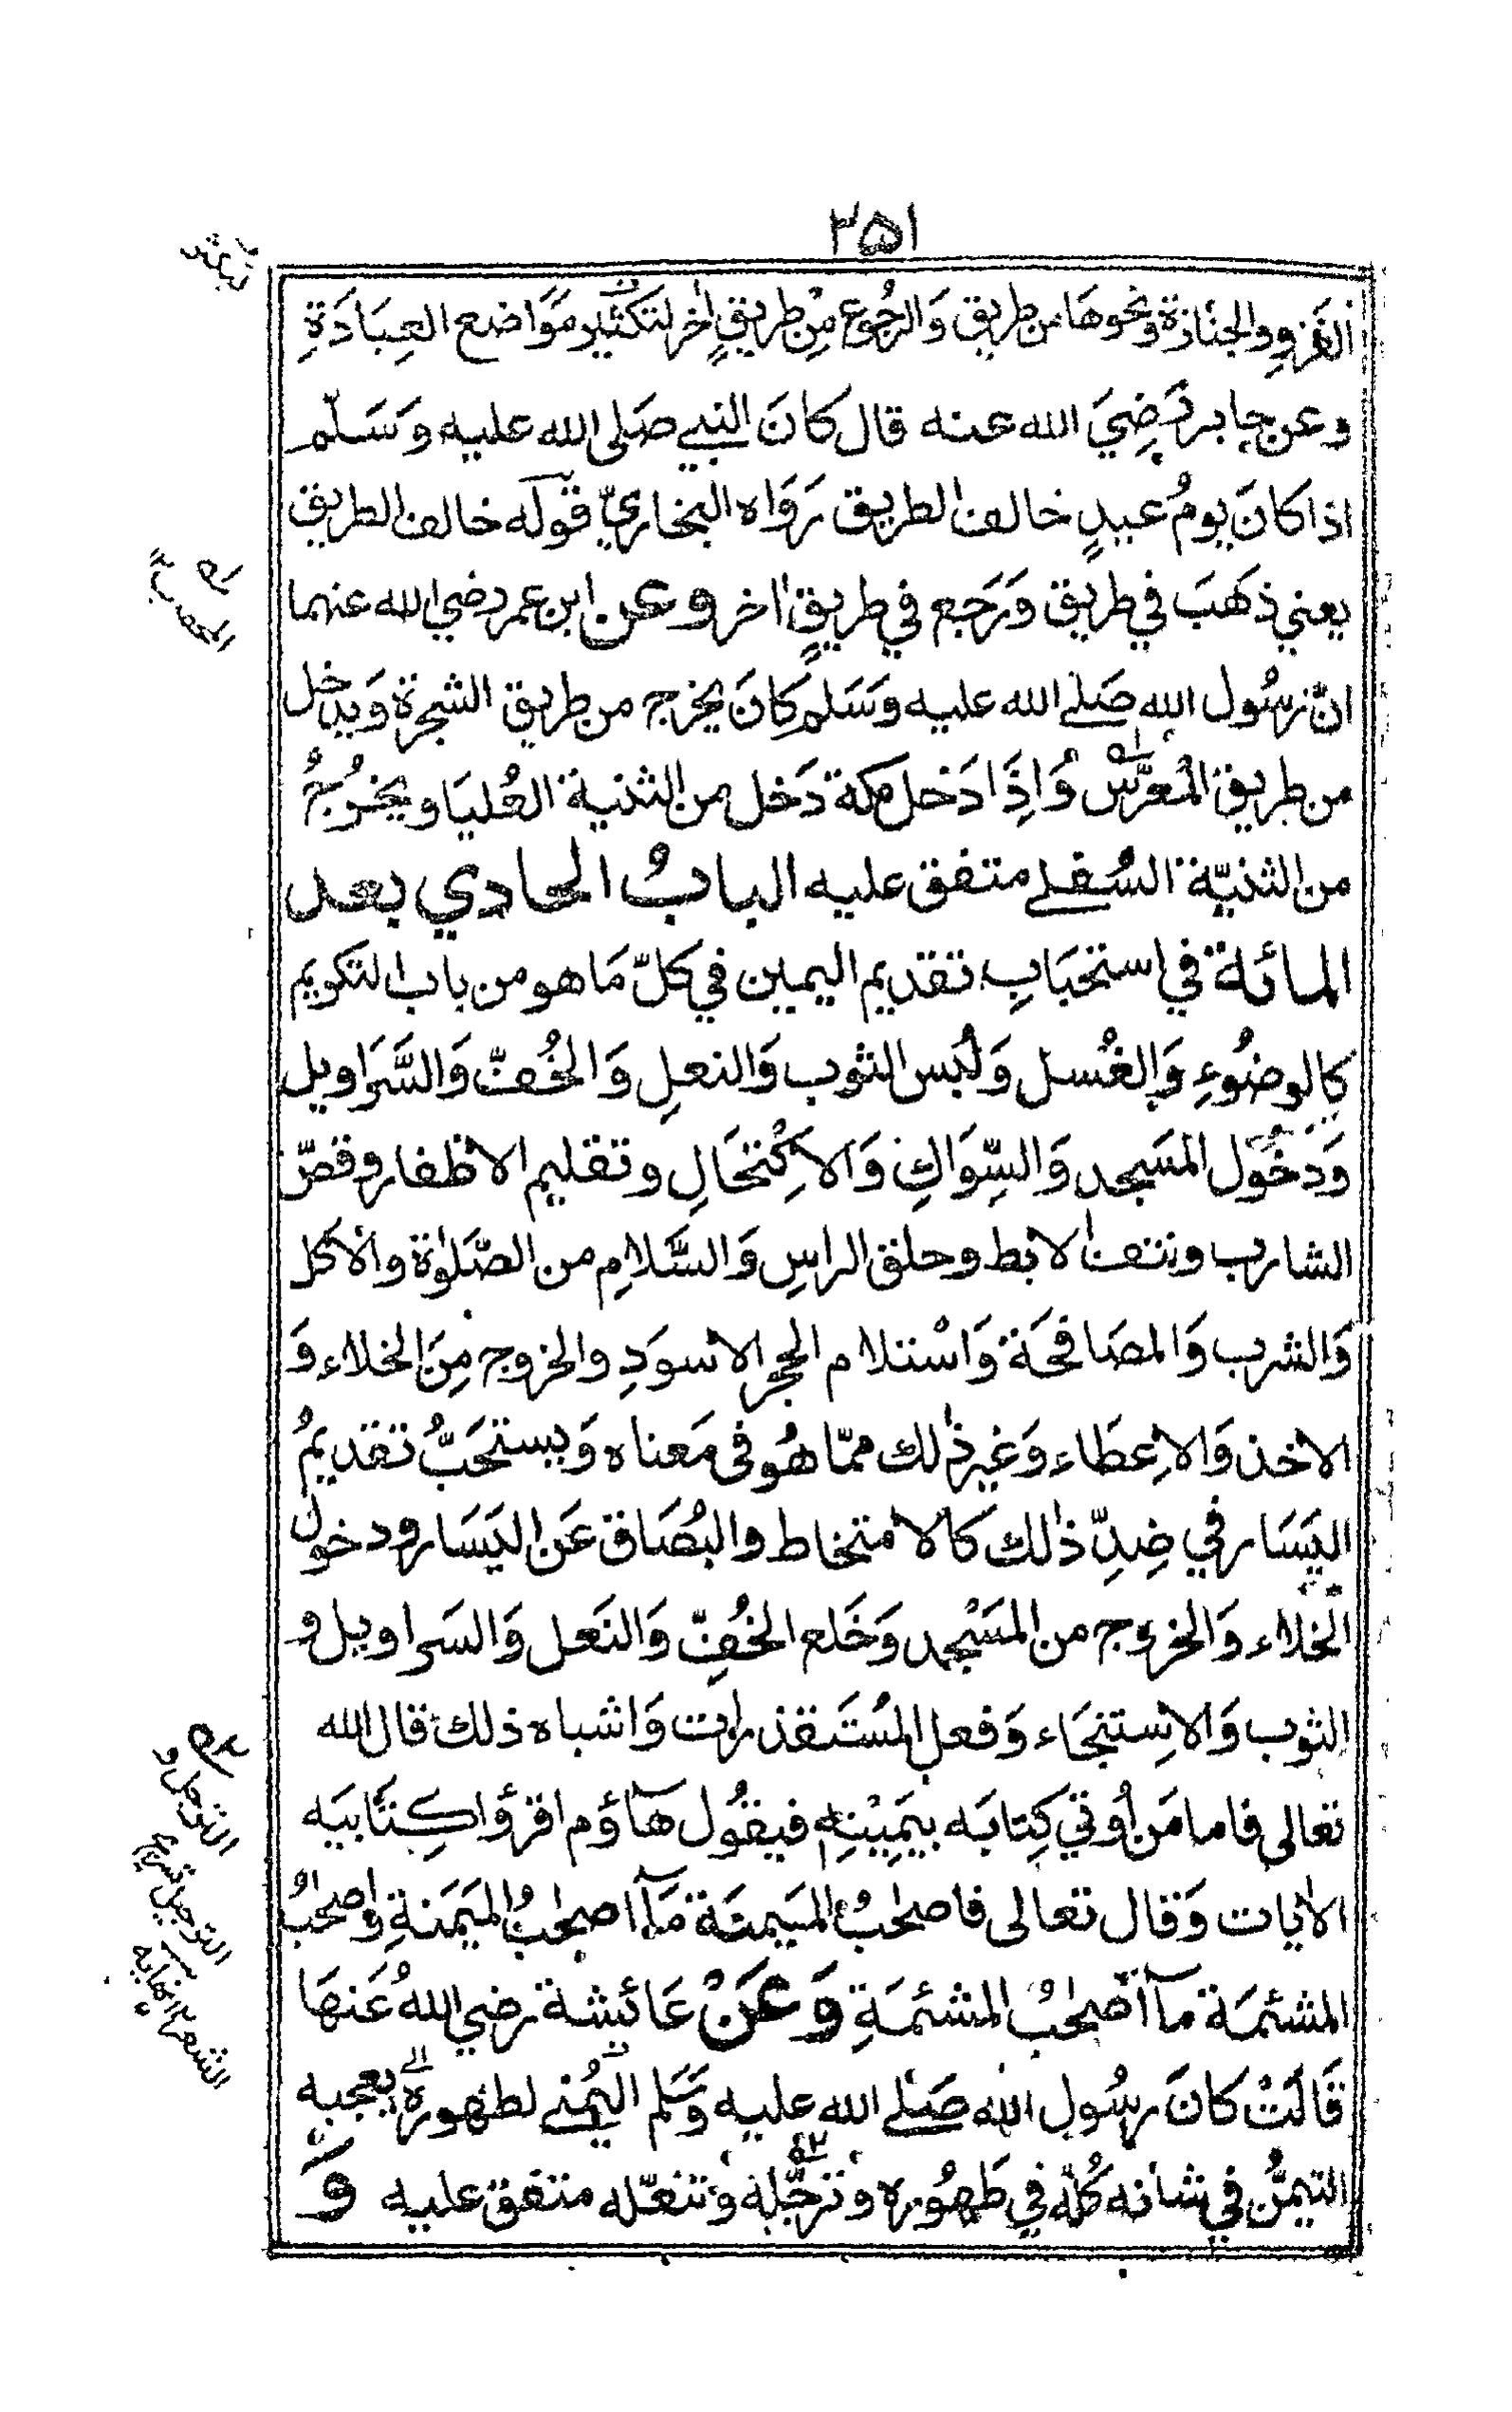 ٢٥١
الغزو والجنازة ونحوها من طريق وَالرجُوع مِنْ طريقٍ اٰخر لتكثير مَوَاضع العِبَادَةِ
وعن جابر رَضِيَ الله عنه قال كانَ النبي صَلى الله عليه وَسَلّم
اذا كانَ يومُ عيدٍ خالف الطريق رَوَاه البخاريّ قوله خالف الطريق
يعني ذَهَبَ في طريق وَرَجع في طريقٍ اٰخر وعن ابن عمر رضي الله عنهما
انّ رسُول الله صَلے الله عليه وَسَلم كانَ يخرج من طريق الشجرة وَيدخل
من طريق المُعَرَّس وَاِذَا دَخل مكة دَخل من الثنية العُليَا ويخرُجُ
من الثنيّة السُفلے متفق عليه البابُ الحادي بعد
المائة في استحبَابِ تقديم اليمين في كلّ مَا هو من باب التكريم
كالوضُوءِ وَالغُسل وَلُبس الثوب وَالنعلِ وَالخُفّ وَالسَّرَاويل
وَدخُول المسَجد وَالسِّوَاكِ وَالاِكْتحَالِ وتقليم الاظفار وقصّ
الشارب ونتف الابط وحلق الراسِ وَالسَّلامِ من الصَّلوٰة والاكل
وَالشرب وَالمصَافحَة وَاسْتلام الحجر الاسوَدِ والخروج مِنَ الخلاء وَ
الاخذ وَالاِعطَاء وَغير ذٰلك ممّا هُو فى مَعناه وَيستحَبُّ تقديمُ
اليَسَار في ضِدِّ ذٰلك كالامتخاط والبُصَاق عَن اليَسَار ودخول
الخلاء وَالخروج من المسْجد وَخَلع الخُفِّ وَالنَعل وَالسَراويل و
الثوب وَالاِستنجَاء وَفعل المسُتَقذرات وَاشباه ذلك قال الله
تعالى فاما مَن اُوتي كِتابَه بيَمِيْنِهٖ فيقُول هَآؤم اقرؤا كِتَابيَه
الاٰيات وَقال تعالى فاصحٰبُ المَيمنَة مَآ اصحٰبُ المَيمَنةِ واصحٰبُ
المشئمَة مآ اصحٰبُ المشئمَةِ وَعَنْ عَائشة رضي اللهُ عَنهَا
قَالَتْ كانَ رسُول الله صَلے الله عليه وَسَلم اليُمنے لطهوره يعجبه
التيمُّن في شانه كُلّه في طَهُوره وترجّله وتنعّله متفق عليه وَ